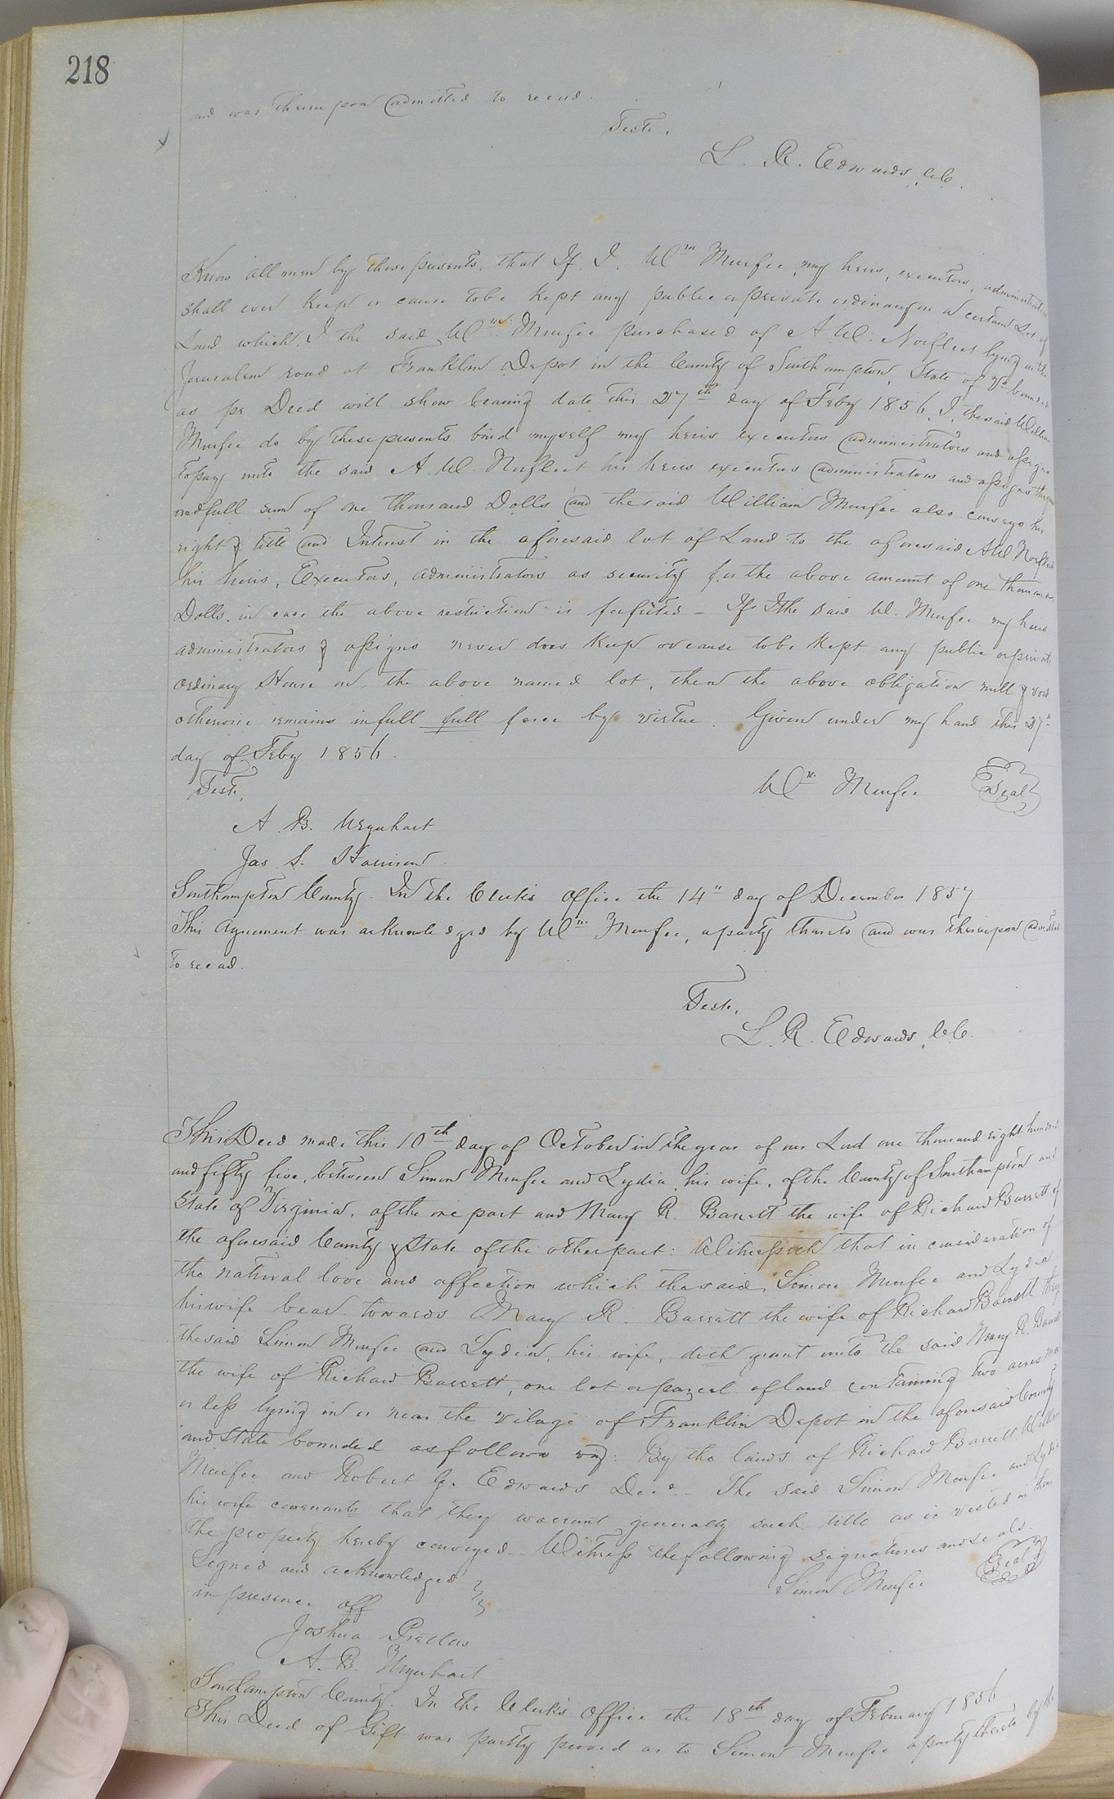 218
and was thereupon admitted to record.
Teste,
L. R. Edwards, C.C.
Know all men by these presents, that If I, Wm Murfee, my heirs, executors, administrators
shall ever keep or cause to be kept any public or private ordinary on a certain Lot of
Land which I the said Wm Murfee purchased of A W. Norfleet lying on the
Jerusalem road at Franklin Depot in the County of Southampton, State of Va bounded
as pr Deed will show bearing date this 27th day of Feby 1856, I, the said William
Murfee do by these presents bind myself my heirs executors administrators and assigns
to pay unto the said A W Norfleet his heirs executors administrators and assigns the
and full sum of one thousand Dolls and the said William Murfee also conveys his
right & title and Interest in the aforesaid lot of Land to the aforesaid A W Norfleet
his heirs, Executors, administrators as security for the above amount of one thousand
Dolls. in case the above restriction is forfeited - If I the said W. Murfee my heirs
administrators & assigns never does keep or cause to be kept any public or private
ordinary House on the above named lot, then the above obligation null & void
otherwise remains in full full force by virtue. Given under my hand this 27th
day of Feby 1856.
Test,
Wm Murfee Seal
A B. Urquhart
Jas S. Harrison
Southampton County. In the Clerk's Office the 14" day of December 1857
This Agreement was acknowledged by Wm Murfee, a party thereto and was thereupon admitted
to record.
Teste,
L. R. Edwards, C.C.
This Deed made this 10th day of October in the year of our Lord one thousand eight hundred
and fifty five, between Simon Murfee and Lydia, his wife, of the County of Southampton and
State of Virginia, of the one part and Mary R. Barrett the wife of Richard Barrett of
the aforesaid County & State of the other part: Witnesseth that in consideration of
the natural love and affection which the said Simon Murfee and Lydia
his wife bear towards Mary R. Barrett the wife of Richard Barrett they
the said Simon Murfee and Lydia, his wife, doth grant unto the said Mary R. Barrett
the wife of Richard Barrett, one lot or parcel of land containing two acres more
or less lying in or near the vilage of Franklin Depot in the aforesaid County
and State bounded as follows viz: By the lands of Richard Barrett, William
Murfee and Robert G. Edwards Decd. The said Simon Murfee and Lydia
his wife covenants that they warrant generally such title as is vested in them
the property hereby conveyed. Witness the following signatures and seals.
Signed and acknowledged
Simon Murfee Seal
in presence off
Joshua Pretlow
A. B. Urquhart
Southampton County. In the Clerk's Office the 18th day of February 1856
This Deed of Gift was partly proved as to Simon Murfee a party thereto by the